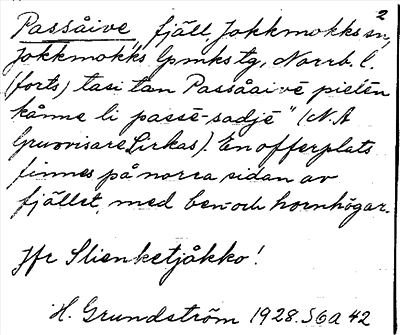 2
Passåive, fjäll, Jokkmokks sn,
Jokkmokks lpmkstg, Norrb. l.
(forts) tasi tan Passåaive pielen
kånne li passe-sadje" (N.A
Gruovisare Lirkas). En offerplats
finnes på norra sidan av
fjället, med ben- och hornhögar.
Jfr Slienketjåkko!
H. Grundström 1928. S6a 42